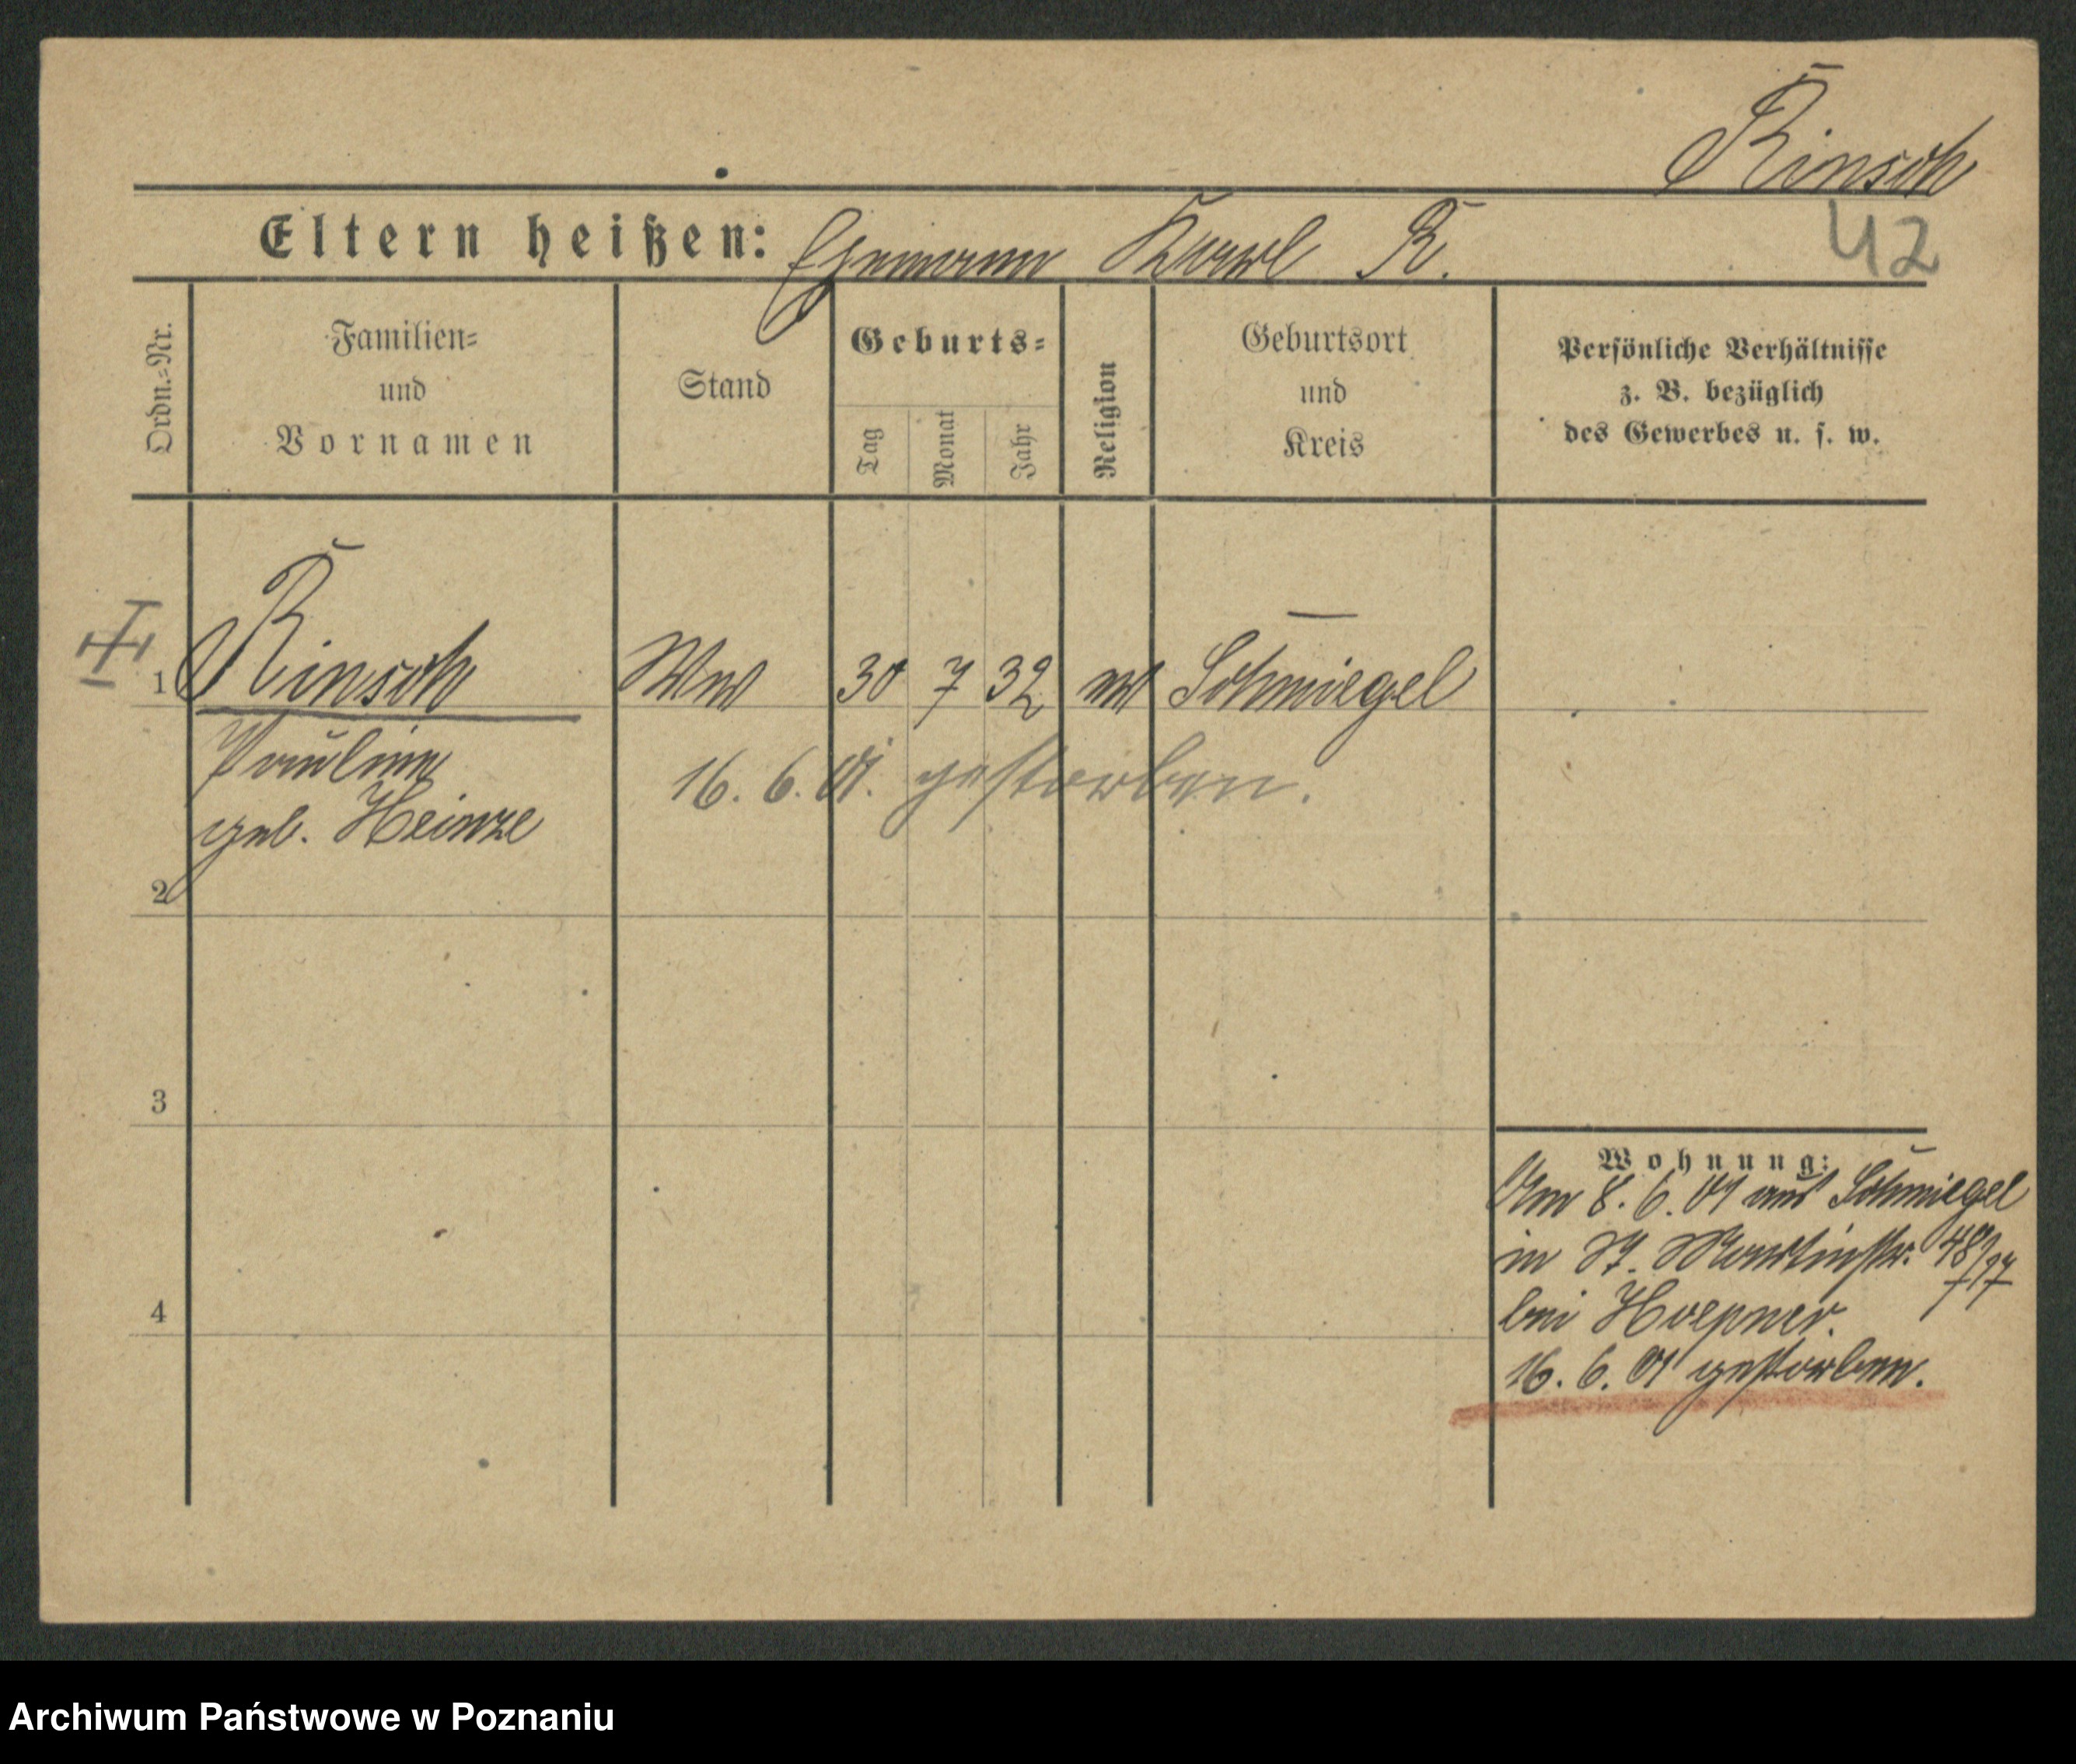 Rinsch
Eltern heißen: Ehemann Karl R.
42
Ordn.=Nr.
Familien=
und
Vornamen
Stand
Geburts=
Tag
Monat
Jahr
Religion
Geburtsort
und
Kreis
Persönliche Verhältnisse
z. B. bezüglich
des Gewerbes u. s. w.
1 Rinsch Ww 30 7 32 ev Schmiegel
Pauline
16. 6. 01. gestorben.
geb. Heinze
2
3
Wohnung:
Am 8. 6. 01 aus Schmiegel
in St. Martinstr.
4
bei Hoepner.
16. 6. 01 gestorben.
Archiwum Państwowe w Poznaniu